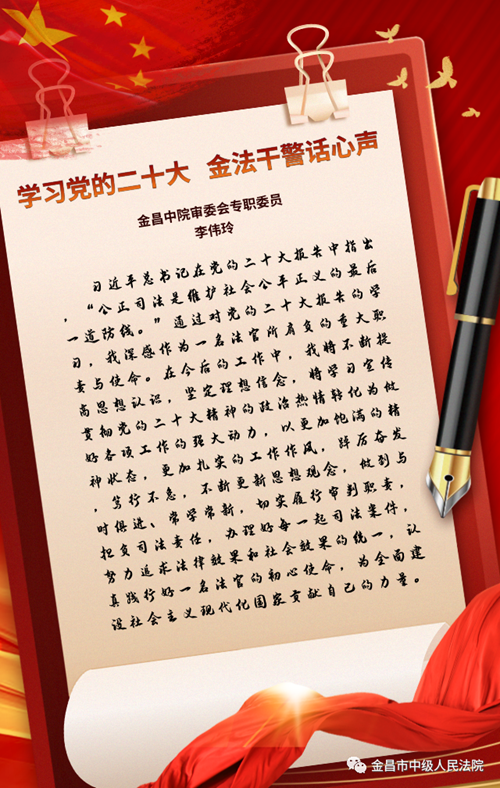 学习党的二十大 金法干警话心声
金昌中院审委会专职委员
李伟玲
习近平总书记在党的二十大报告中指出
，“公正司法是维护社会公平正义的最后
一道防线。”通过对党的二十大报告的学
习，我深感作为一名法官所肩负的重大职
责与使命。在今后的工作中，我将不断提
高思想认识，坚定理想信念，将学习宣传
贯彻党的二十大精神的政治热情转化为做
好各项工作的强大动力，以更加饱满的精
神状态，更加扎实的工作作风，踔厉奋发
，笃行不怠，不断更新思想观念，做到与
时俱进、常学常新，切实履行审判职责，
担负司法责任，办理好每一起司法案件，
努力追求法律效果和社会效果的统一，认
真践行好一名法官的初心使命，为全面建
设社会主义现代化国家贡献自己的力量。
金昌市中级人民法院